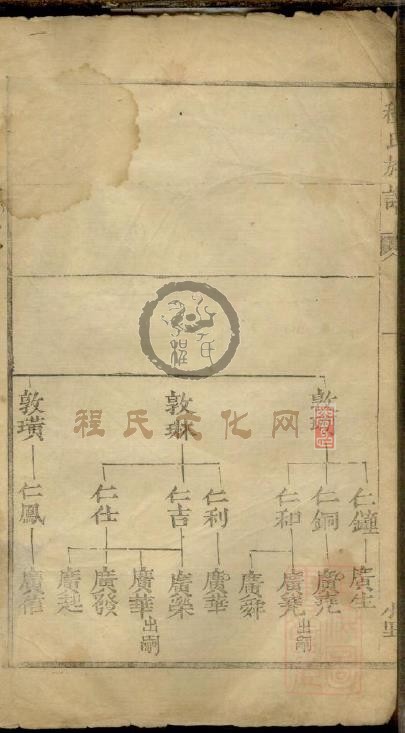 程氏族譜
敦
仁鐘
仁銅
仁和
廣生
廣堯
廣堯出嗣
廣舜
敦琳
仁利
仁吉
仁仕
廣華
廣藥
廣華出嗣
廣發
廣起
敦璜
仁鳳
廣信
程氏文化网